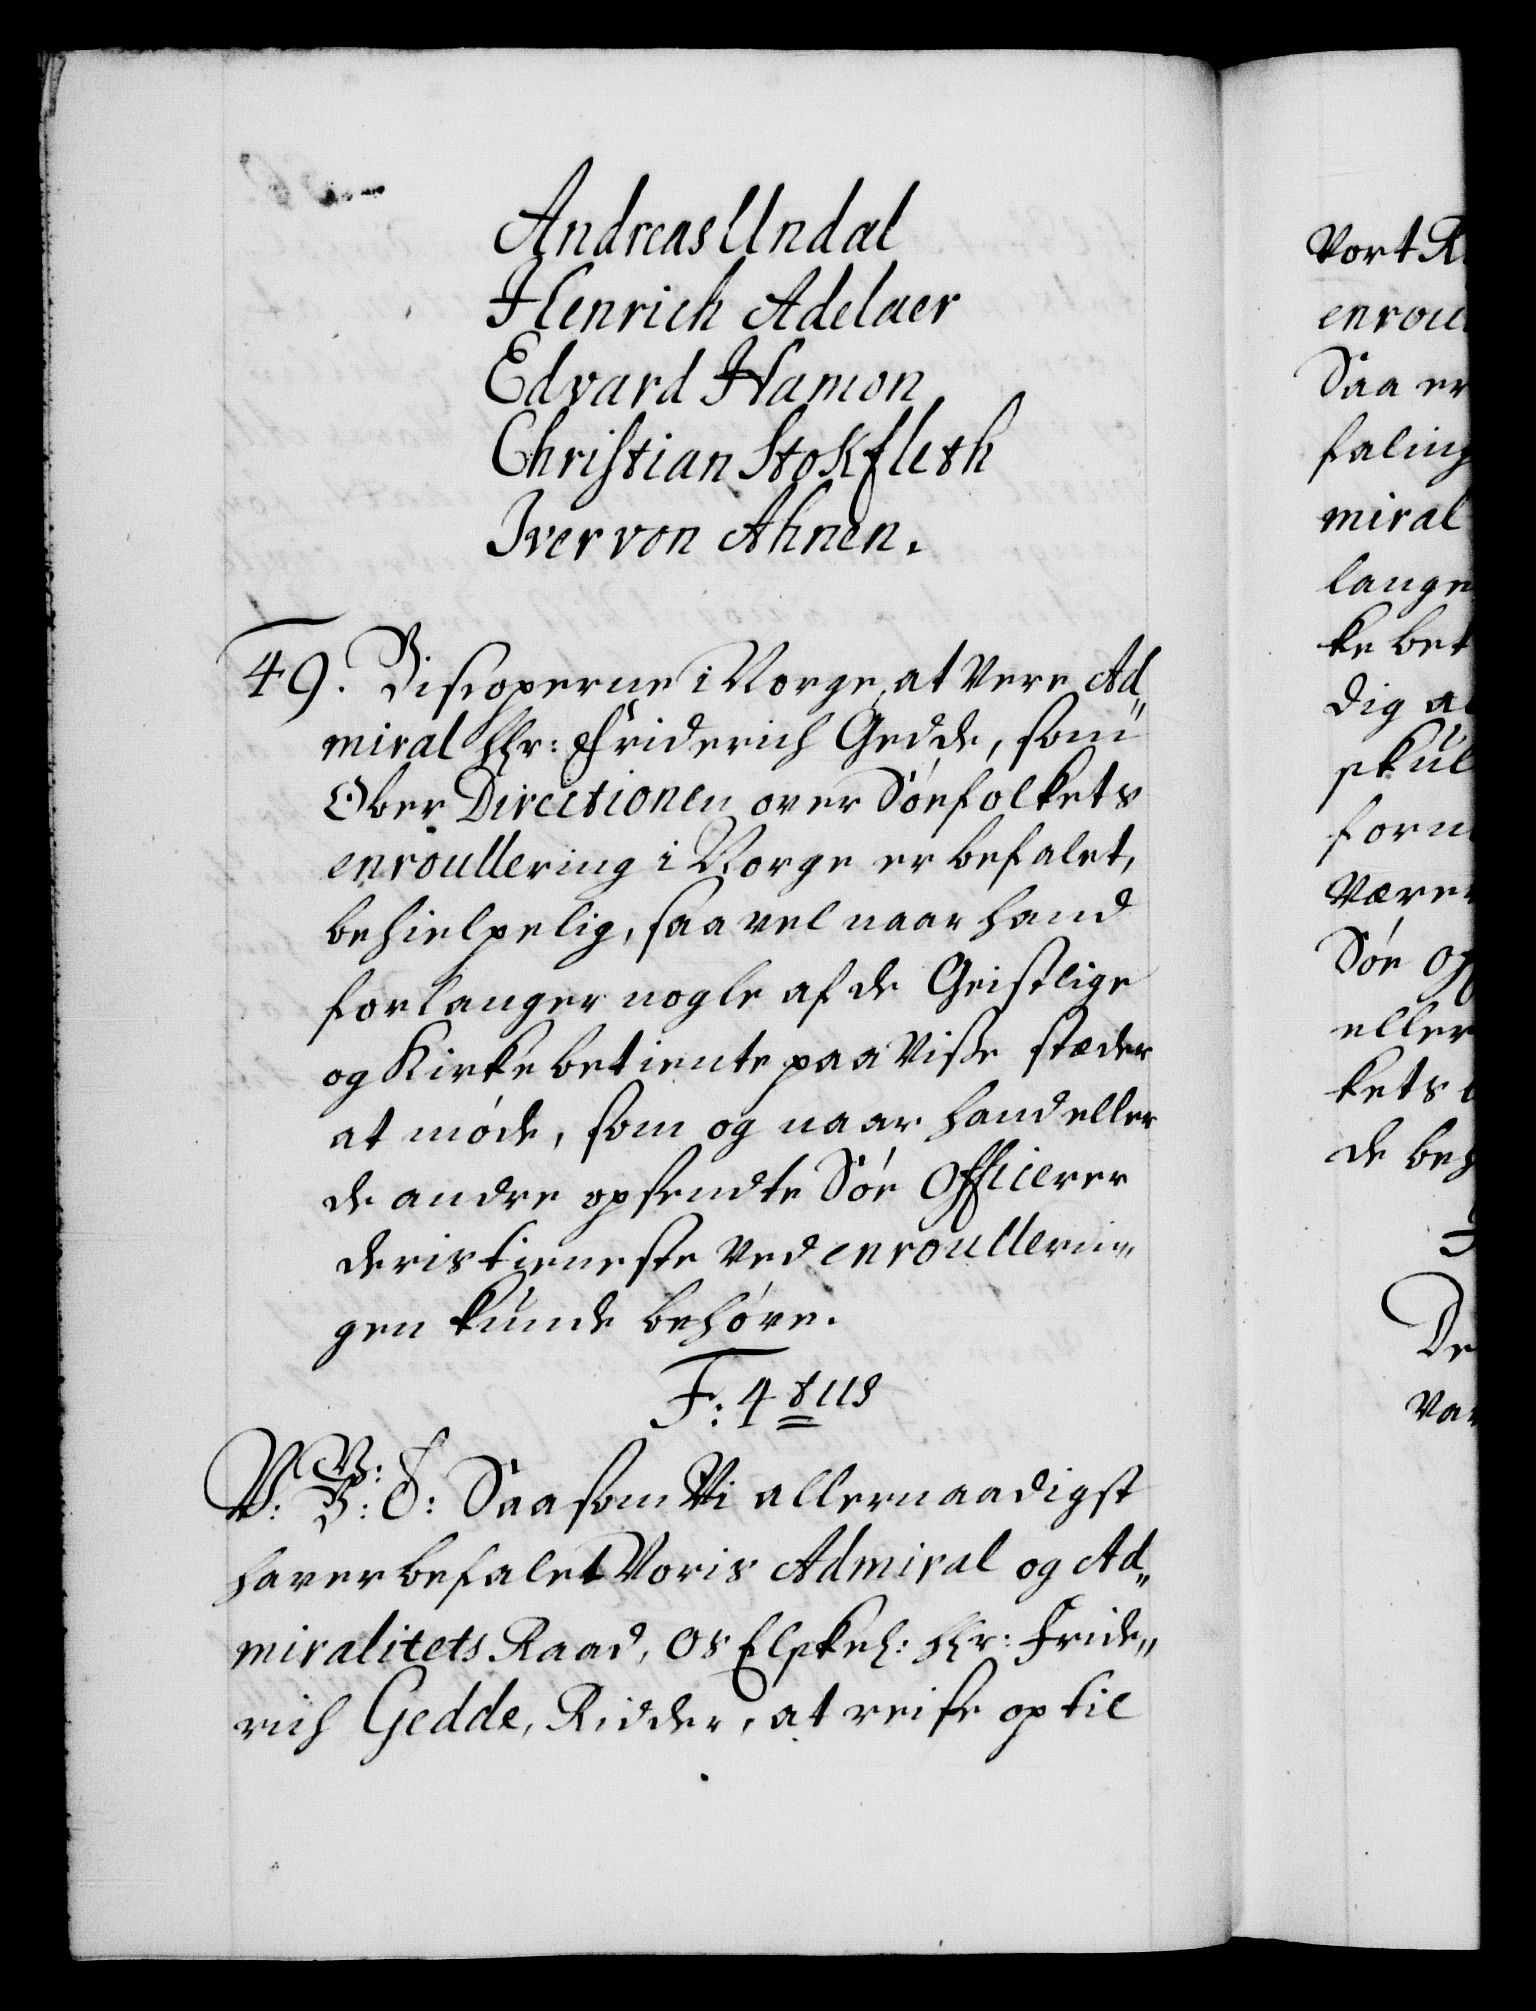 Andreas Undal
Henrich Adelaer
Edvard Hamon
Christian Stokfleth
Iver von Ahnen.
49. Biscoperne i Norge, at vere Ad„
miral Hr: Friderich Gedde, som
Ober Directionen over Söefolkets
enroullering i Norge er befalet,
behielpelig, saavel naar hand
forlanger nogle af de Geistlige
og Kirkebetiente paa visse stæder
at möde, som og naar hand eller
de andre opsendte Söe Officerer
deris tieneste ved enroullerin„
gen kunde behöve.
F: 4tus
V: G: T: Saasom Vi allernaadigst
haver befalet Voris Admiral og Ad„
miralitets Raad, Os Elskel: Hr: Fride„
rich Gedde, Ridder, at reise op til
Vort R
enroul
Saa er
faling
miral
lange
ke bet
dig a
skul
forn
være
Söe Of
eller
kets
de beh
De
Var